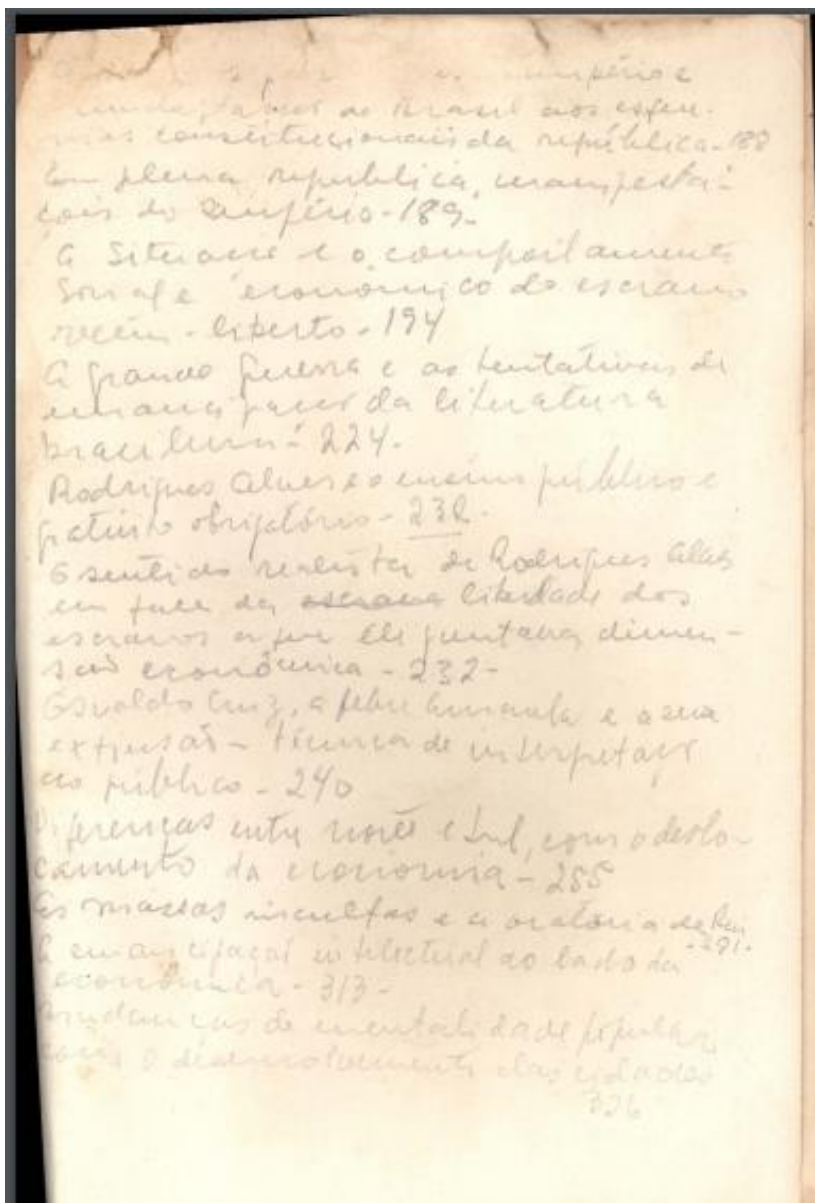 império e
do Brasil aos esque-
mas constitucionais da república - 188
Em plena república, manifesta-
ções do Império - 189 -
A situação e o comportamento
social e econômico do escravo
recém-liberto - 194
A grande guerra e as tentativas de
emancipação da literatura
brasileira - 224 -
Rodrigues Alves e o ensino público e
gratuito obrigatório - 232 -
O sentido realista de Rodrigues Alves
em face da liberdade dos
escravos a que ele juntava dimen-
são econômica - 232 -
Osvaldo Cruz, a febre amarela e a sua
extinsão - técnica de
ao público - 240
Diferenças entre norte e sul, com o deslo-
camento da economia - 255
As massas incultas e a oratória de Rui
- 291 -
A emancipação intelectual ao lado da
econômica - 313 -
Mudanças de mentalidade popular
com o desenvolvimento das cidades
326